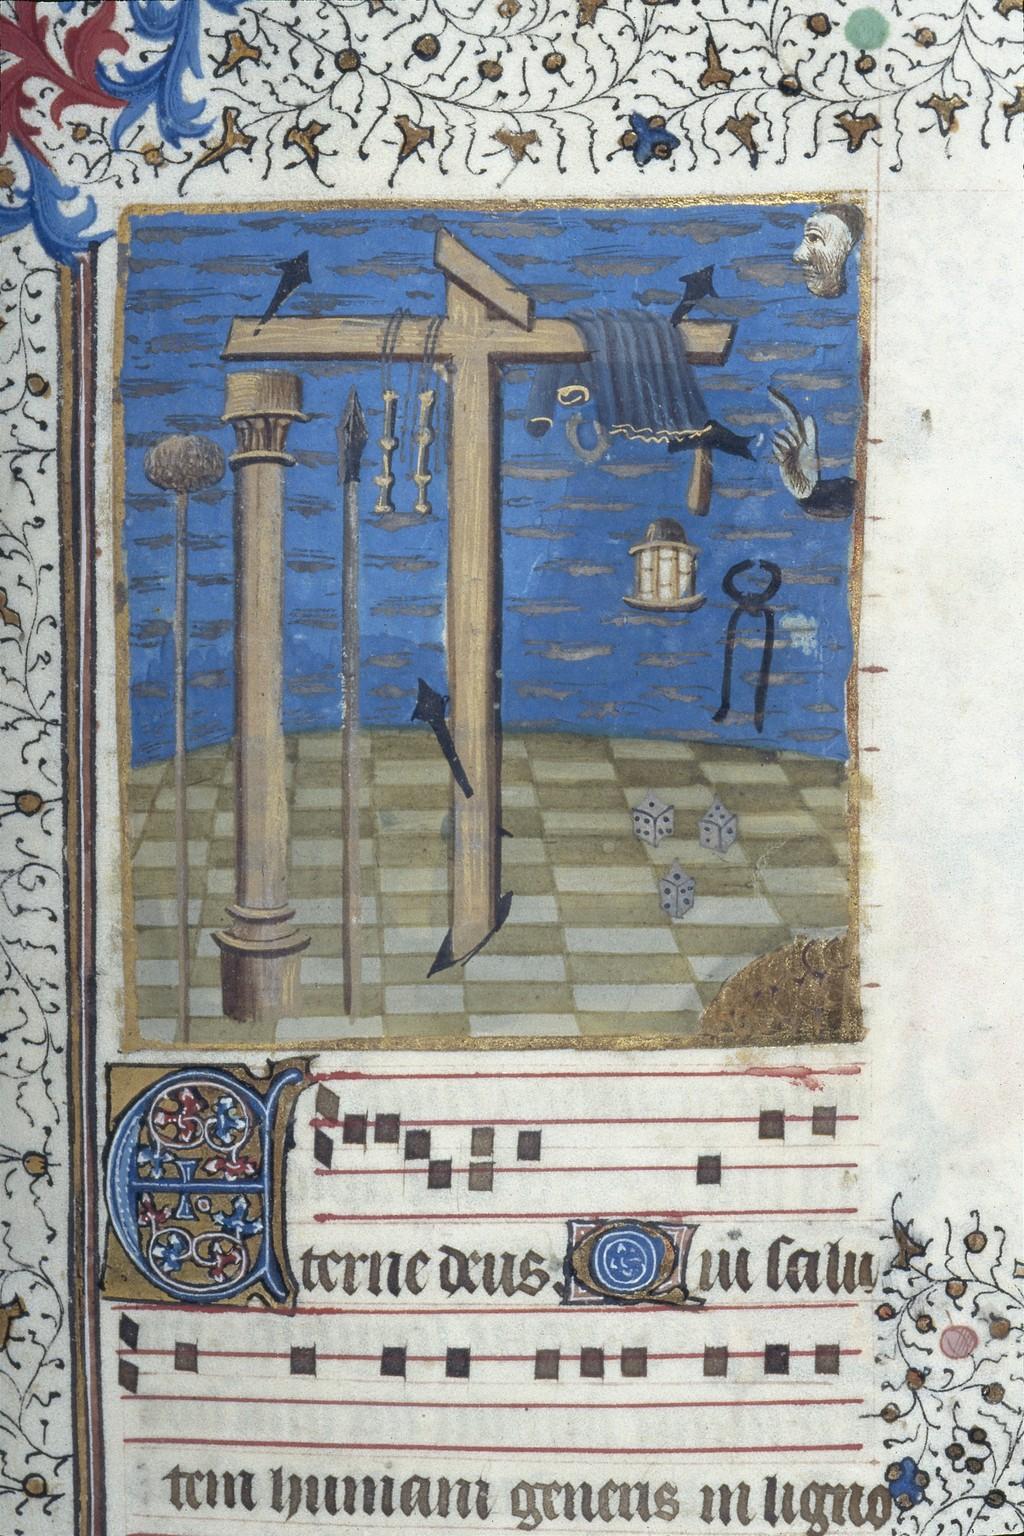 Eterne deus. Qui salu
tem humani generis in ligno